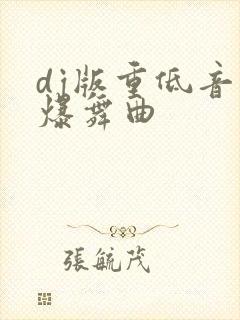 dj版重低音
爆舞曲
張毓茂